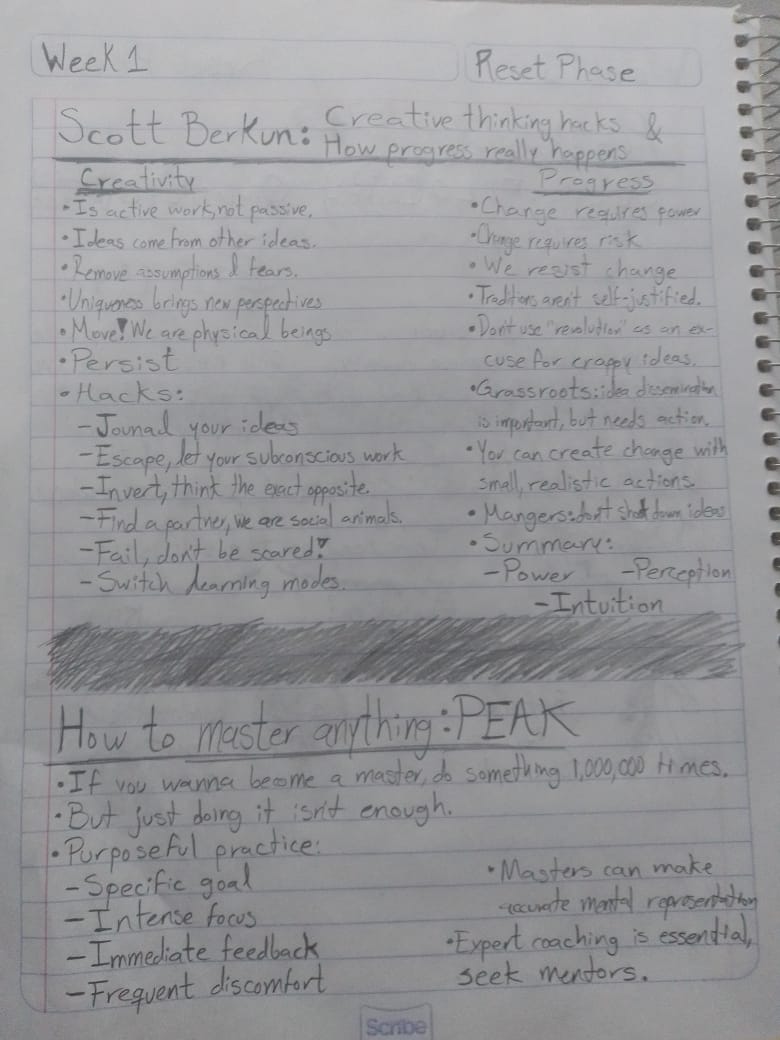 Week 1
Reset Phase
Scott Berkun: Creative thinking hacks &
How progress really happens
Creativity
• Is active work, not passive.
• Ideas come from other ideas.
• Remove assumptions & fears.
• Uniqueness brings new perspectives
• Move! We are physical beings
• Persist
• Hacks:
- Jounal your ideas
- Escape, let your subconscious work
- Invert, think the exact opposite.
- Find a partner, we are social animals.
- Fail, don't be scared!
- Switch learning modes.
Progress
• Change requires power
• Change requires risk
• We resist change
• Traditions aren't self-justified.
• Don't use "revolution" as an ex-
cuse for crappy ideas.
• Grassroots: idea dissemination
is important, but needs action.
• You can create change with
small, realistic actions.
• Mangers: don't shut down ideas
• Summary:
- Power - Perception
- Intuition
How to master anything: PEAK
• If you wanna become a master, do something 1,000,000 times.
• But just doing it isn't enough.
• Purposeful practice:
- Specific goal
- Intense focus
- Immediate feedback
- Frequent discomfort
• Masters can make
accurate mental representation
• Expert coaching is essential,
seek mentors.
Scribe